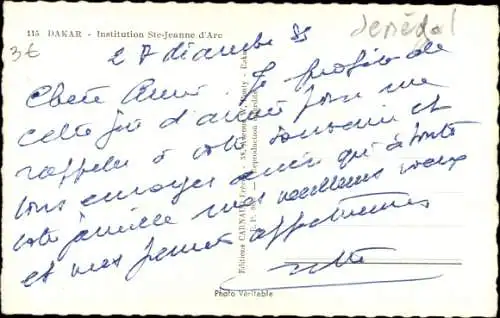 115 DAKAR - Institution Ste-Jeanne d'Arc
Sénégal
3€
27 décembre 55
Chère Amie. Je profite de
cette fin d'année pour me
rappeler à votre souvenir et
vous envoyer ainsi qu'à toute
votre famille mes meilleurs vœux
et mes pensées affectueuses
Photo Véritable